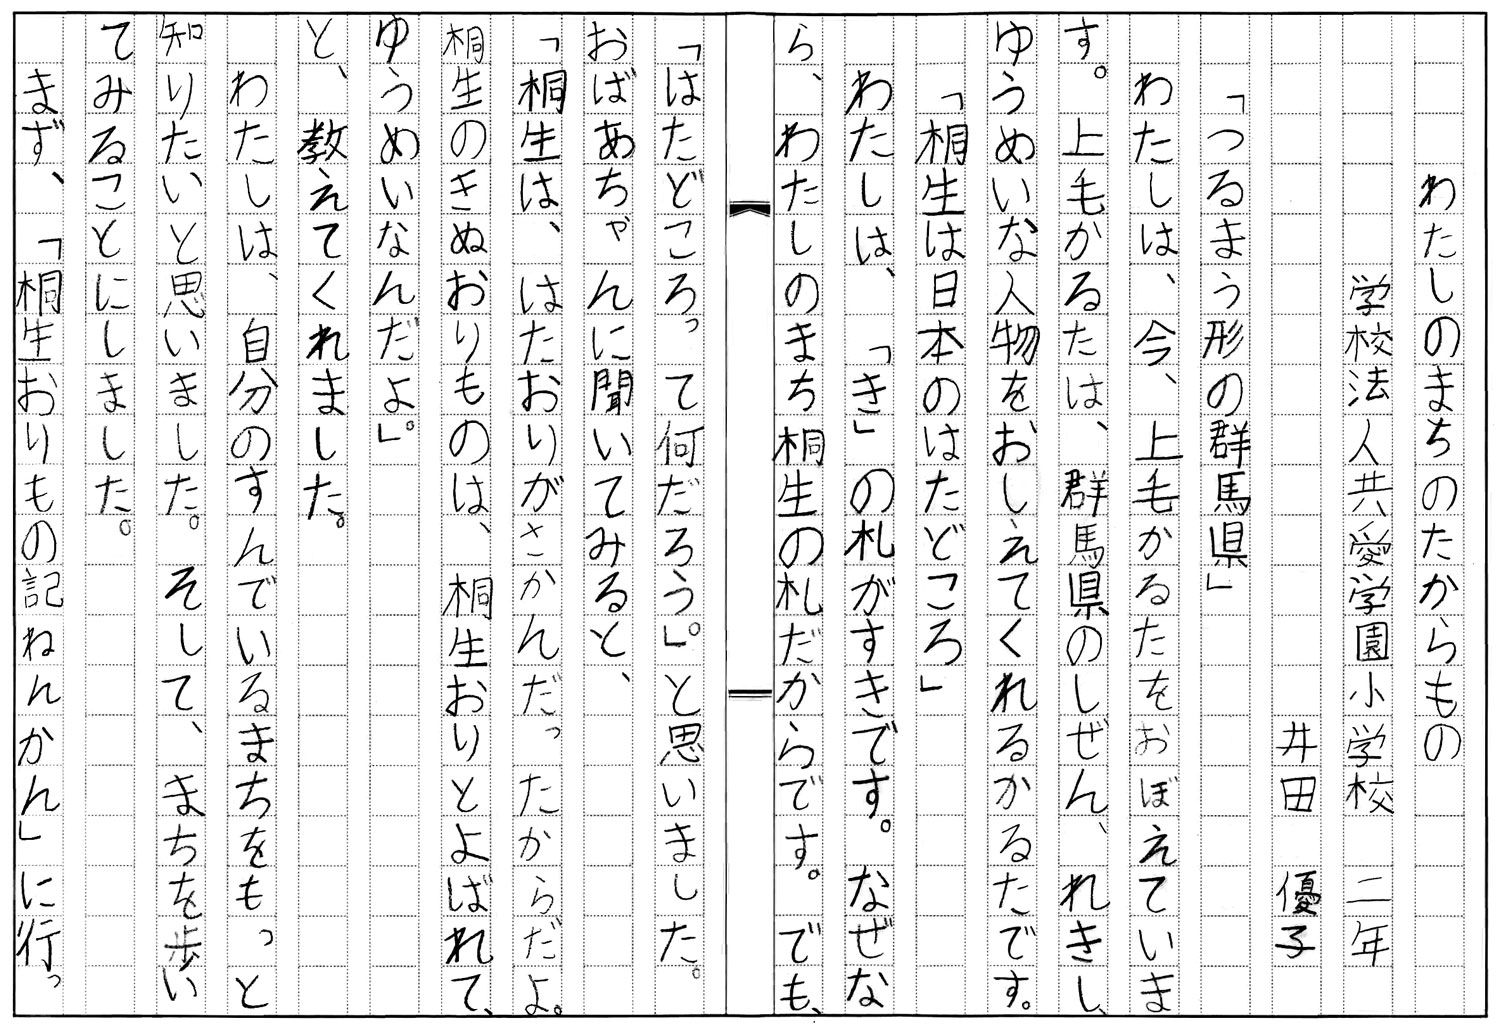 わたしのまちのたからもの
学校法人共愛学園小学校 二年
井田 優子
「つるまう形の群馬県」
わたしは、今、上毛かるたをおぼえていま
す。上毛かるたは、群馬県のしぜん、れきし、
ゆうめいな人物をおしえてくれるかるたです。
「桐生は日本のはたどころ」
わたしは、「き」の札がすきです。なぜな
ら、わたしのまち桐生の札だからです。でも、
「はたどころって何だろう。」と思いました。
おばあちゃんに聞いてみると、
「桐生は、はたおりがさかんだったからだよ。
桐生のきぬおりものは、桐生おりとよばれて、
ゆうめいなんだよ。」
と、教えてくれました。
わたしは、自分のすんでいるまちをもっと
知りたいと思いました。そして、まちを歩い
てみることにしました。
まず、「桐生おりもの記ねんかん」に行っ